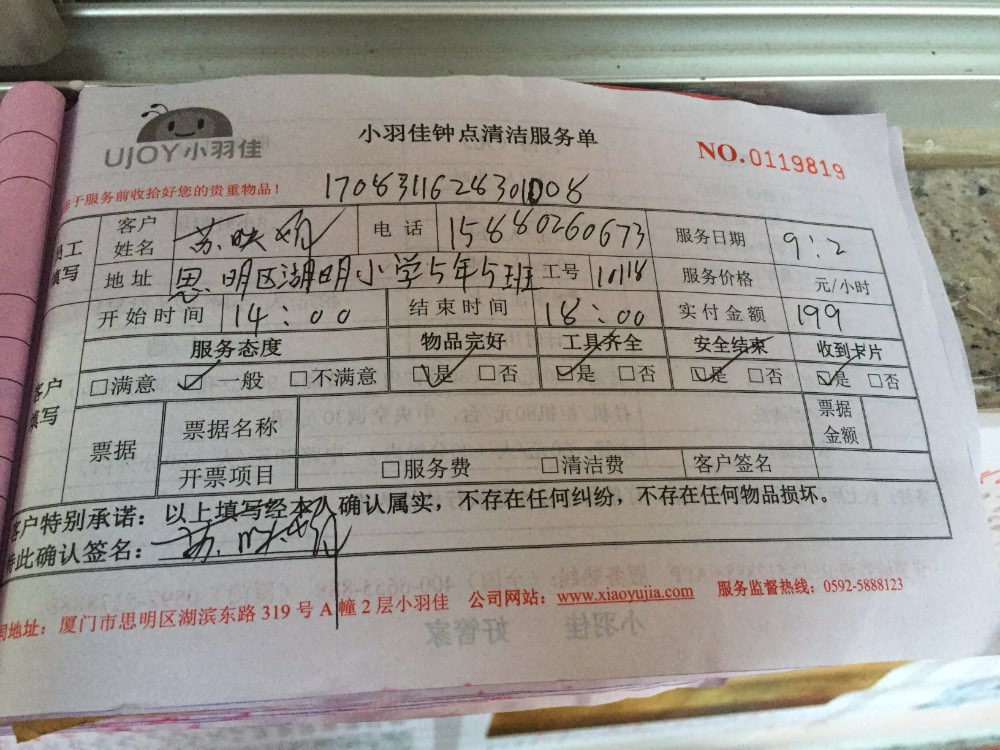 UJOY小羽佳
小羽佳钟点清洁服务单
NO.0119819
于服务前收拾好您的贵重物品！
客户姓名 苏映 电话 15880260673 服务日期 9:2
填写 地址 思明区湖明小学5年5班 工号 10118 服务价格 元/小时
开始时间 14:00 结束时间 18:00 实付金额 199
服务态度 物品完好 工具齐全 安全结束 收到卡片
客户填写 □满意 ☑一般 □不满意 ☑是 □否 ☑是 □否 ☑是 □否 ☑是 □否
票据 票据名称 票据金额
开票项目 □服务费 □清洁费 客户签名
客户特别承诺：以上填写经本人确认属实，不存在任何纠纷，不存在任何物品损坏。
此确认签名：苏映
地址：厦门市思明区湖滨东路 319 号 A 幢 2 层小羽佳 公司网站：www.xiaoyujia.com 服务监督热线：0592-5888123